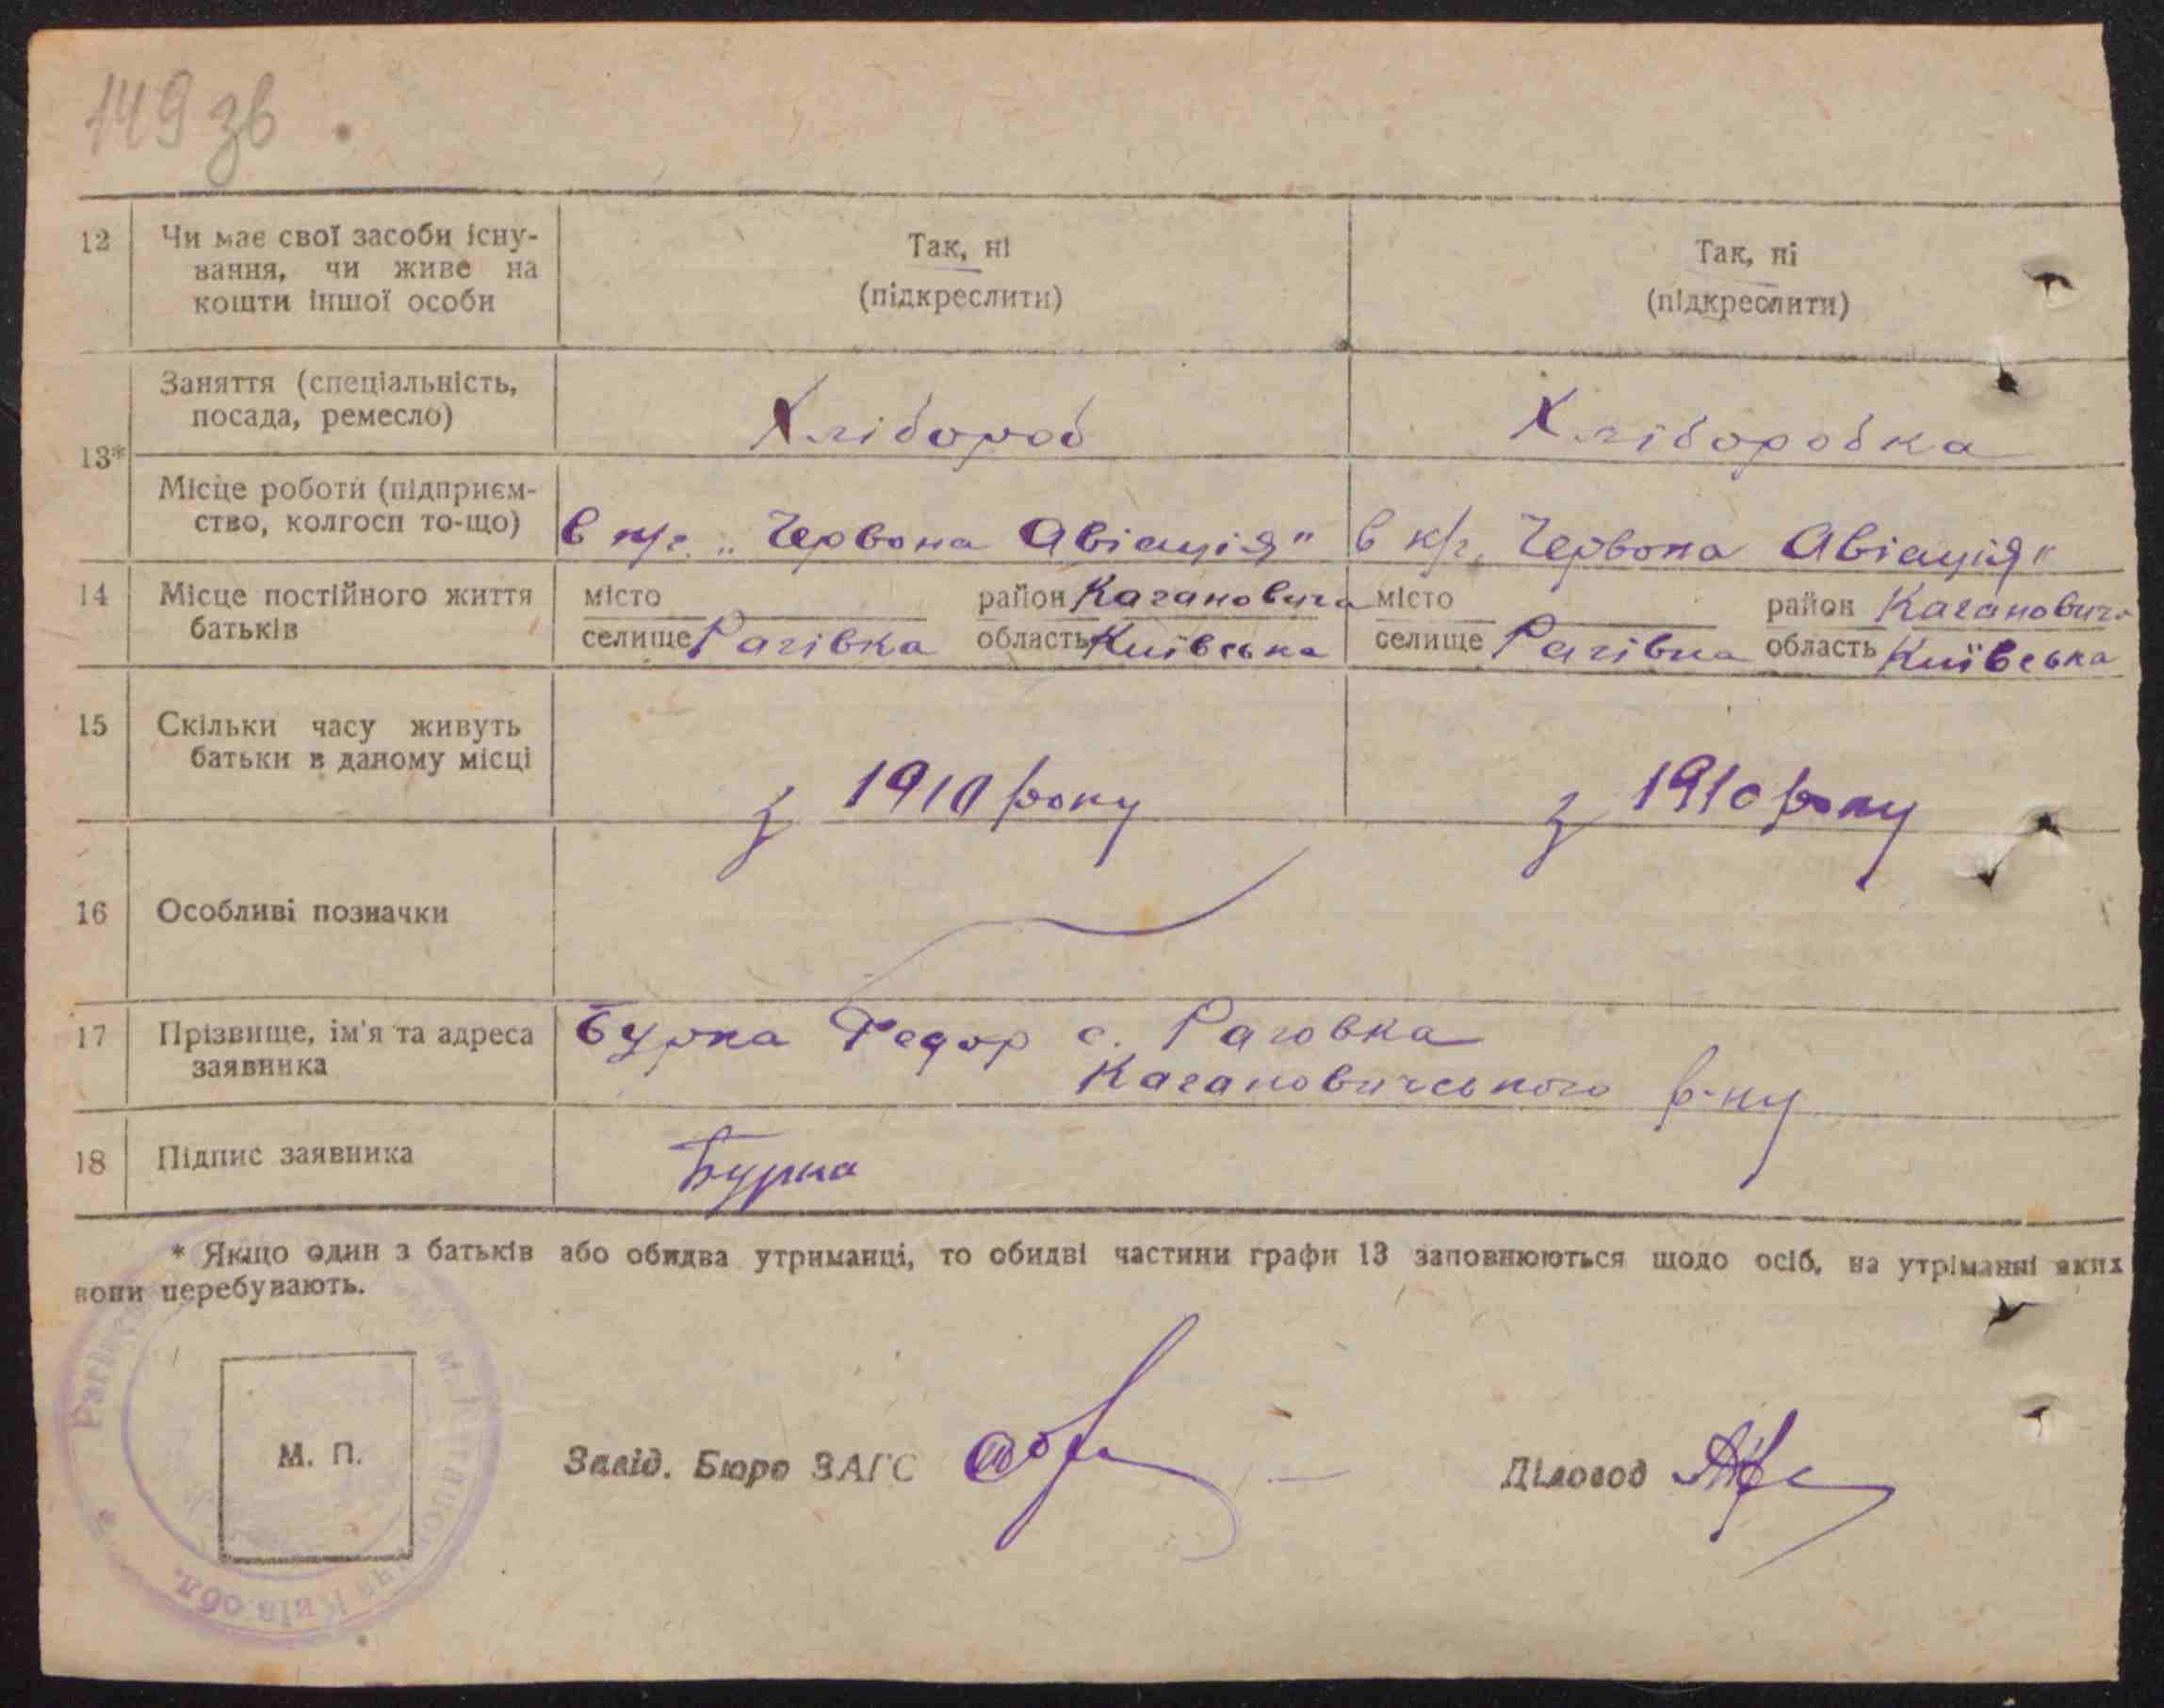 149 зв
12 Чи має свої засоби існу-
вання, чи живе на
кошти іншої особи
Так, ні
(підкреслити)
Так, ні
(підкреслити)
13*
Заняття (спеціальність,
посада, ремесло)
Хлібороб
Хліборобка
Місце роботи (підприєм-
ство, колгосп то-що)
в к/г. „Червона Авіація"
в к/г „Червона Авіація"
14 Місце постійного життя
батьків
місто район Кагановича
селище Рагівка область Київська
місто район Каганович
селище Рагівка область Київська
15 Скільки часу живуть
батьки в даному місці
з 1910 року
з 1910 року
16 Особливі позначки
17 Прізвище, ім'я та адреса
заявника
Бурка Федор с. Раговка
Кагановичського р-ну
18 Підпис заявника
Бурка
* Якщо один з батьків або обидва утриманці, то обидві частини графи 13 заповнюються щодо осіб, на утріманні яких
вони перебувають.
М. П.
Київ обл.
Завід. Бюро ЗАГС
Діловод